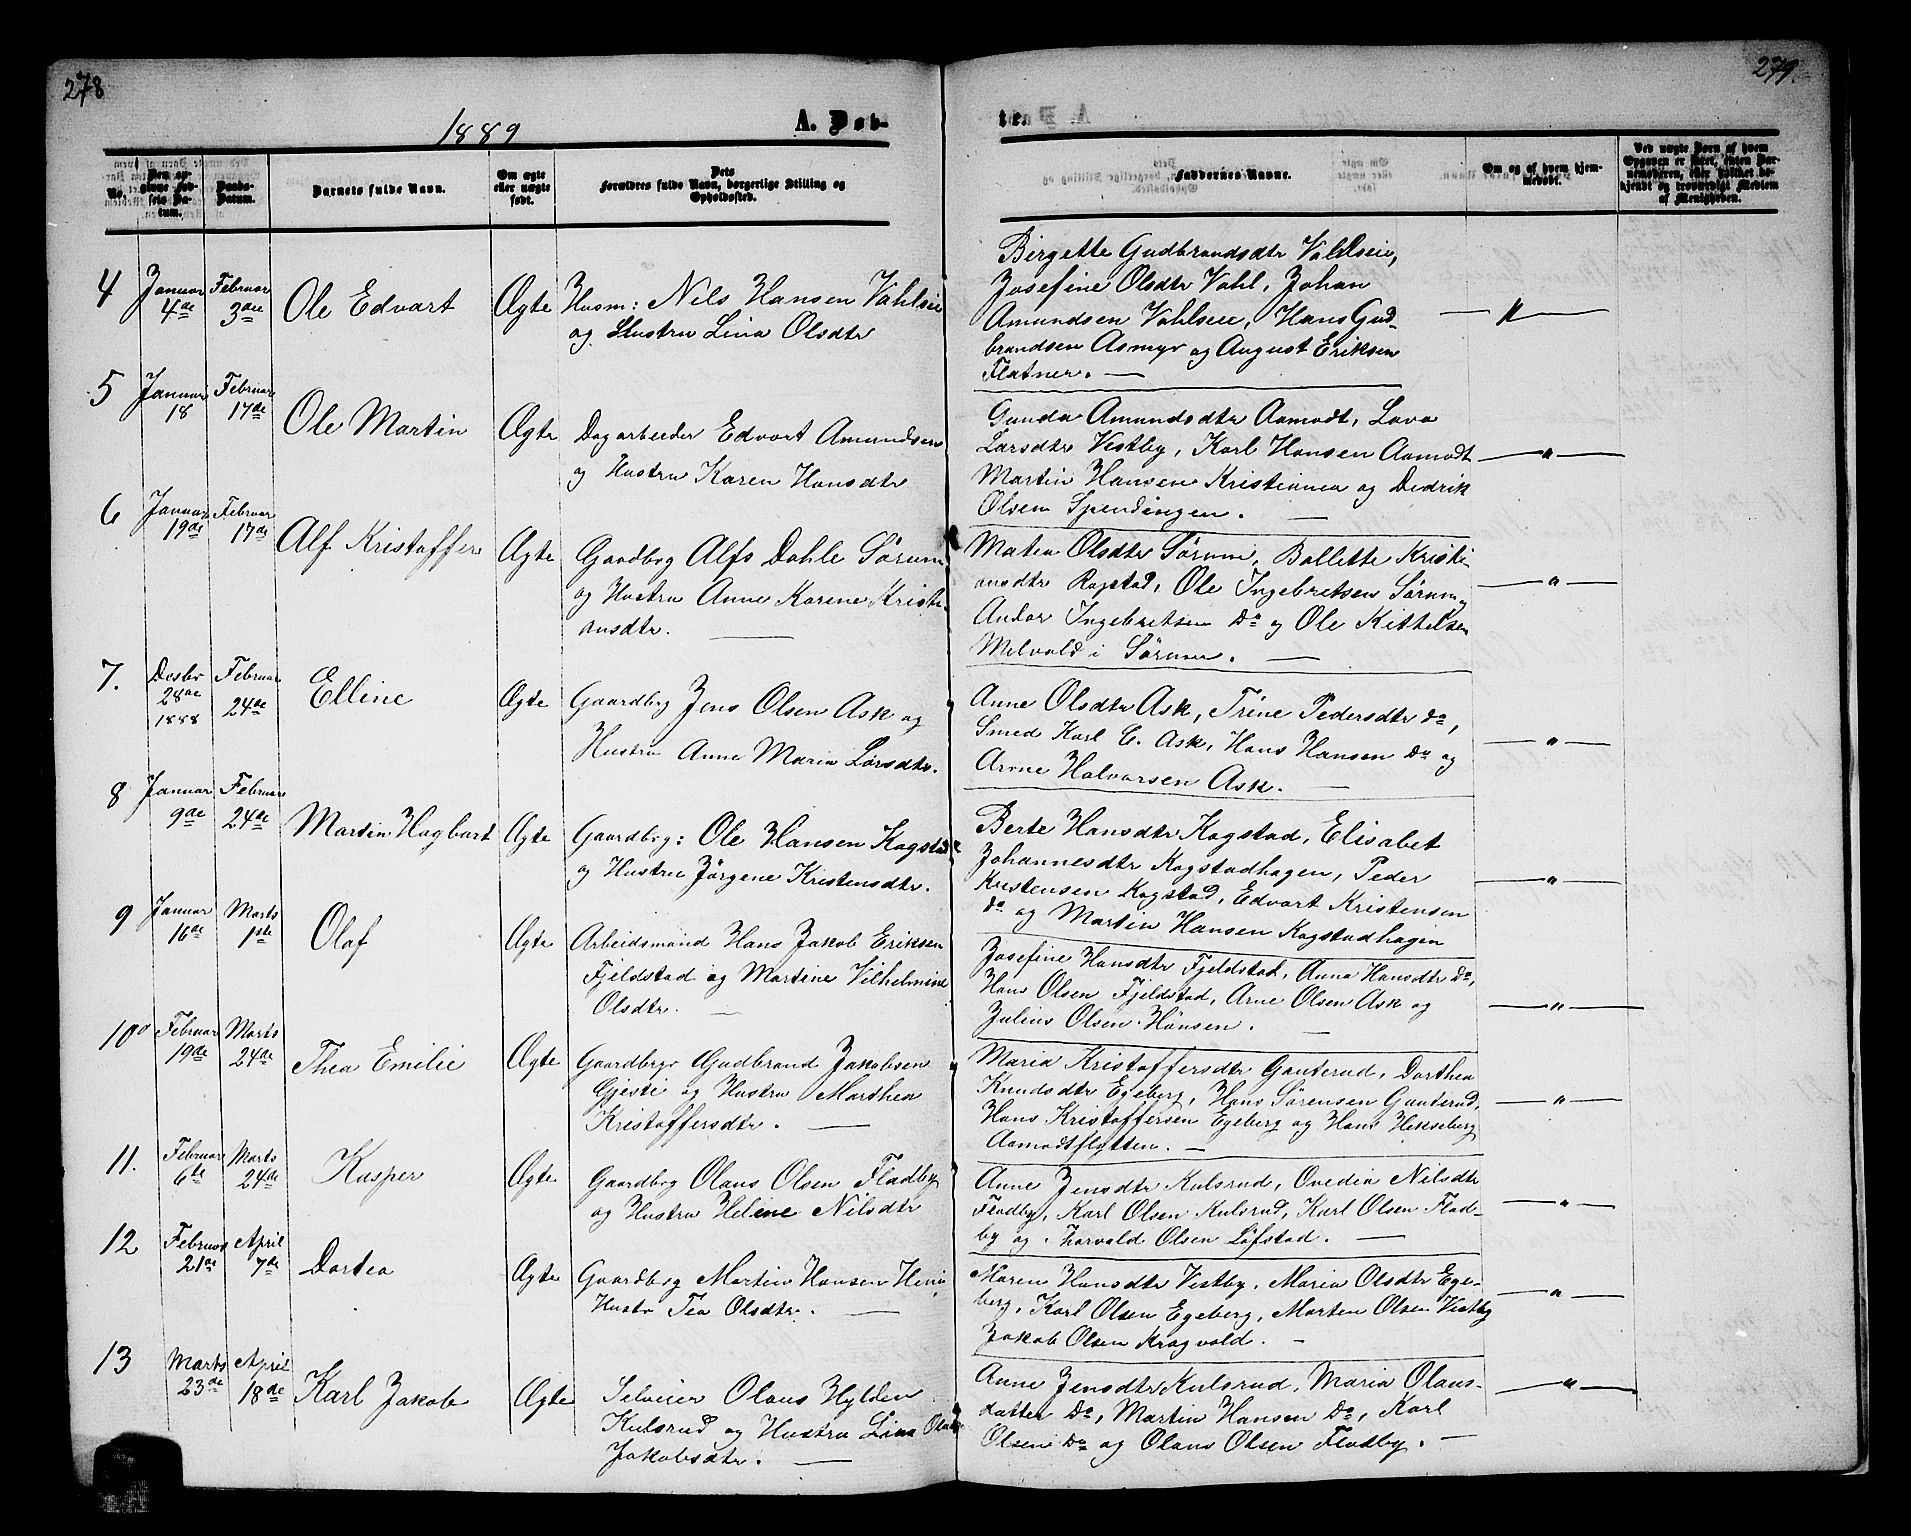 278
279.
1889
A. Døb-
te.
No.
Den op-
givne Fød-
sels Da-
tum.
Daabs-
Datum.
Barnets fulde Navn.
Om ægte
eller uægte
født.
Dets
Forældres fulde Navn, borgerlige Stilling og
Opholdssted.
Faddernes Navne.
Om og af hvem hjem-
medøbt.
Ved uægte Børn af hvem
Opgaven er skeet, enten Bar-
nemoderen, eller hvilket be-
kjendt og troværdigt Medlem
af Menigheden.
4
Januar
4de
Februar
3die
Ole Edvart
Ægte
Husm: Nils Hansen Vahlseie
og Hustru Lina Olsdtr
Birgette Gudbrandsdtr Vahlseie,
Josefine Olsdtr Vahl, Johan
Amundsen Vahlseie, Hans Gud-
brandsen Asmyr og August Eriksen
Flatner. —
— " —
5
Januar
18
Februar
17de
Ole Martin
Ægte
Dagarbeider Edvart Amundsen
og Hustru Karen Hansdtr
Gunda Amundsdtr Aamodt, Lava
Larsdtr Vestby, Karl Hansen Aamodt
Martin Hansen Kristiania og Didrik
Olsen Spendingen. —
— " —
6
Januar
19de
Februar
17de
Alf Kristoffer
Ægte
Gaardbrg Alfs Dahle Sørum
og Hustru Anne Karine Kristi-
ansdtr. —
Matea Olsdtr Sørum, Ballette Kristi-
ansdtr Ragstad, Ole Ingebretsen Sørum,
Andor Ingebretsen Do og Ole Kittelsen
Melvold i Sørum. —
— " —
7.
Desbr
28de
1888
Februar
24de
Elline
Ægte
Gaardbrg Jens Olsen Ask og
Hustru Anne Maria Larsdtr.
Anne Olsdtr Ask, Trine Pedersdtr do,
Smed Karl C. Ask, Hans Hansen Do og
Arne Halvorsen Ask. —
— " —
8
Januar
9de
Februar
24de
Martin Hagbart
Ægte
Gaardbrg: Ole Hansen Kogstad
og Hustru Jörgene Kristensdtr.
Berte Hansdtr Kogstad, Elisabet
Johannesdtr Kogstadhagen, Peder
Kristensen Kogstad, Edvart Kristensen
do og Martin Hansen Kogstadhagen
— " —
9
Januar
16de
Marts
1ste
Olaf
Ægte
Arbeidsmand Hans Jakob Eriksen
Fjeldstad og Martine Vilhelmine
Olsdtr. —
Josefine Hansdtr Fjeldstad, Anna Hansdtr Do,
Hans Olsen Fjeldstad, Arne Olsen Ask og
Julius Olsen Hönsen. —
— " —
10
Februar
19de
Marts
24de
Thea Emilie
Ægte
Gaardbrgr Gudbrand Jakobsen
Gjesti og Hustru Marthea
Kristoffersdtr. —
Maria Kristoffersdtr Ganterud, Dorthea
Knudsdtr Egeberg, Hans Sörensen Ganterud,
Hans Kristoffersen Egeberg og Hans Hexeberg
Aamodtflytten. —
— " —
11.
Februar
6te
Marts
24de
Kasper
Ægte
Gaardbrg Olaus Olsen Fladby
og Hustru Heline Nilsdtr
Anne Jensdtr Kulsrud, Ovedia Nilsdtr
Fladby, Karl Olsen Kulsrud, Karl Olsen Flad-
by og Thorvald Olsen Löfstad. —
— " —
12
Februar
21de
April
7de
Dortea
Ægte
Gaardbrg Martin Hansen
Hustr Tea Olsdtr. —
Maren Hansdtr Vestby, Maria Olsdtr Ege-
berg, Karl Olsen Egeberg, Morten Olsen Vestby
Jakob Olsen Kragvold. —
— " —
13
Marts
23de
April
18de
Karl Jakob
Ægte
Selveier Olaus Hylden
Kulsrud og Hustru Lina
Jakobsdtr. —
Anne Jensdtr Kulsrud, Maria Olaus-
datter Do, Martin Hansen Do, Karl
Olsen Do og Olaus Olsen Fladby. —
— " —